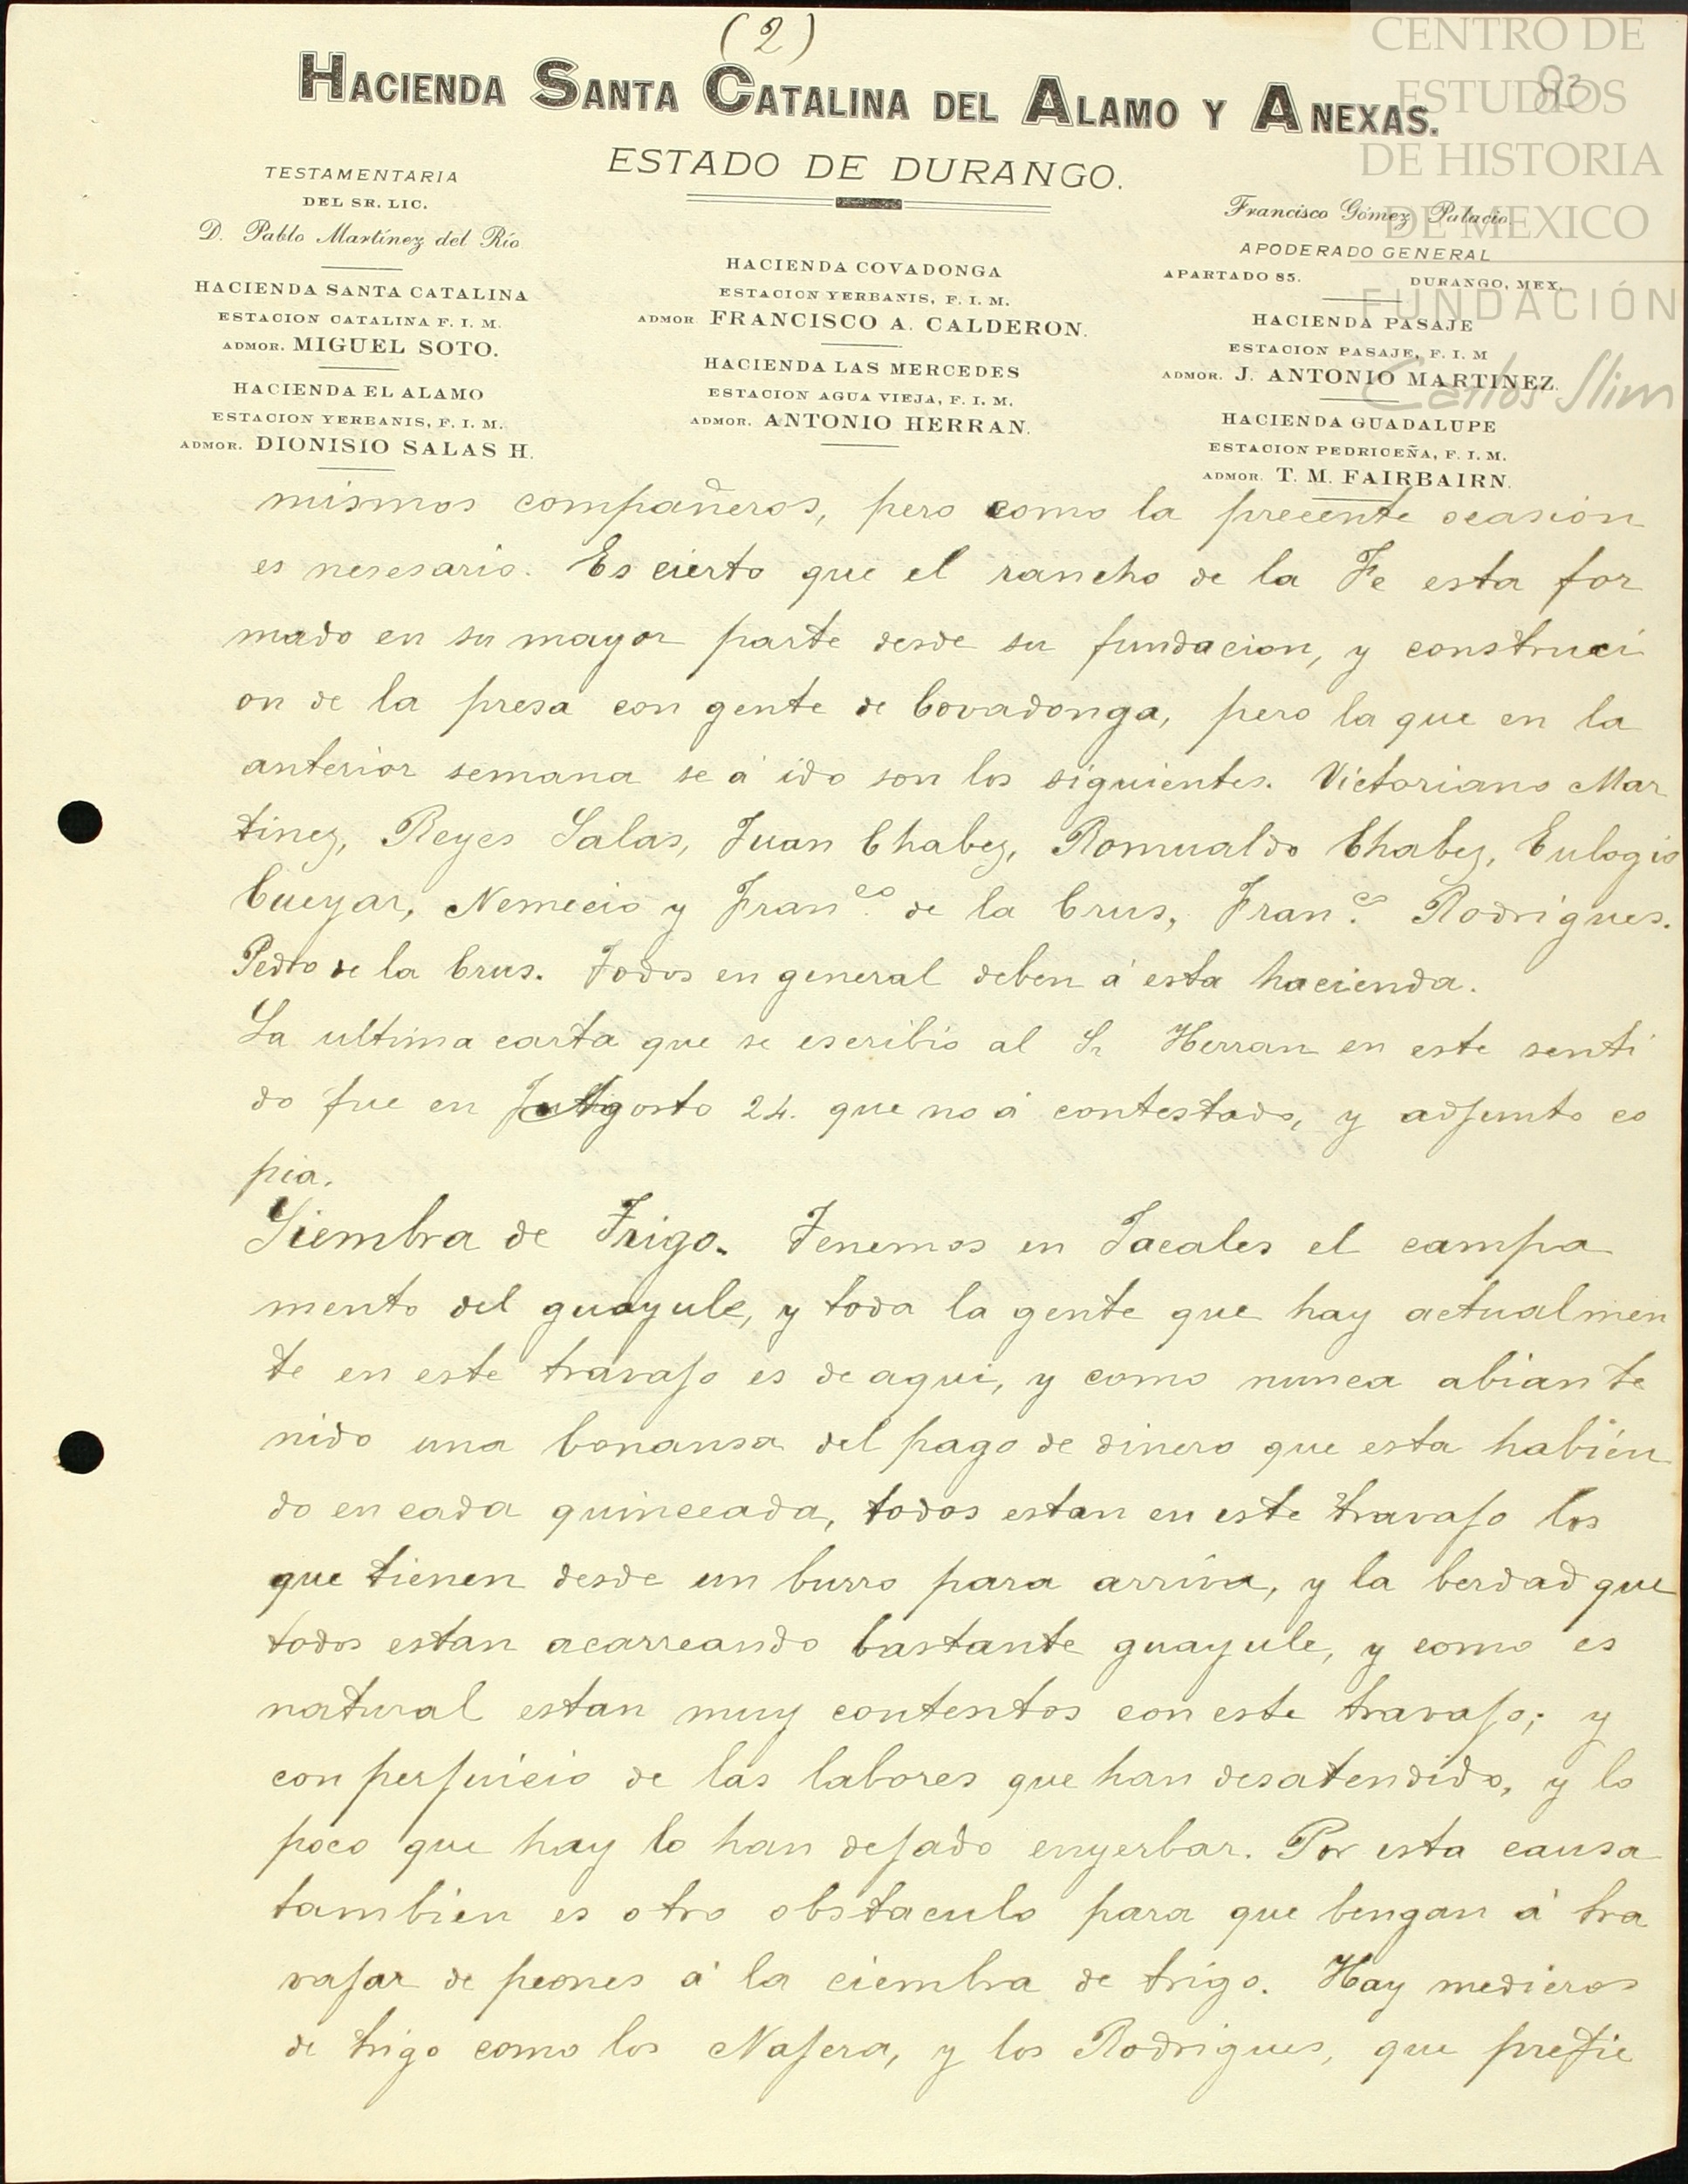 (2)
83
HACIENDA SANTA CATALINA DEL ALAMO Y ANEXAS.
ESTADO DE DURANGO.
TESTAMENTARIA
DEL SR. LIC.
D. Pablo Martínez del Río
HACIENDA SANTA CATALINA
ESTACION CATALINA F. I. M.
ADMOR. MIGUEL SOTO.
HACIENDA EL ALAMO
ESTACION YERBANIS, F. I. M.
ADMOR. DIONISIO SALAS H.
HACIENDA COVADONGA
ESTACION YERBANIS, F. I. M.
ADMOR FRANCISCO A. CALDERON.
HACIENDA LAS MERCEDES
ESTACION AGUA VIEJA, F. I. M.
ADMOR. ANTONIO HERRAN.
Francisco Gómez Palacio
APODERADO GENERAL
APARTADO 85. DURANGO, MEX.
HACIENDA PASAJE
ESTACION PASAJE, F. I. M
ADMOR. J. ANTONIO MARTINEZ.
HACIENDA GUADALUPE
ESTACION PEDRICEÑA, F. I. M.
ADMOR. T. M. FAIRBAIRN.
CENTRO DE
ESTUDIOS
DE HISTORIA
DE MEXICO
FUNDACIÓN
Carlos Slim
mismos compañeros, pero como la precente ocasion
es nesesario. Es cierto que el rancho de la Fe esta for
mado en su mayor parte desde su fundacion, y construci
on de la presa con gente de Covadonga, pero la que en la
anterior semana se á ido son los siguientes. Victoriano Mar
tinez, Reyes Salas, Juan Chabez, Romualdo Chabez, Eulogio
Cueyar, Nemecio y Fran.co de la Crus, Fran.co Rodrigues.
Pedro de la Crus. Todos en general deben á esta hacienda.
La ultima carta que se escribió al Sr Herran en este senti
do fue en Agosto 24. que no á contestado, y adjunto co
pia.
Siembra de Trigo. Tenemos en Jacales el campa
mento del guayule, y toda la gente que hay actualmen
te en este travajo es de aqui, y como nunca abian te
nido una bonansa del pago de dinero que esta habien
do en cada quinceada, todos estan en este travajo los
que tienen desde un burro para arriva, y la berdad que
todos estan acarreando bastante guayule, y como es
natural estan muy contentos con este travajo; y
con perjuicio de las labores que han desatendido, y lo
poco que hay lo han dejado enyerbar. Por esta causa
tambien es otro obstaculo para que bengan á tra
vajar de peones á la ciembra de trigo. Hay medieros
de trigo como los Najera, y los Rodrigues, que prefie